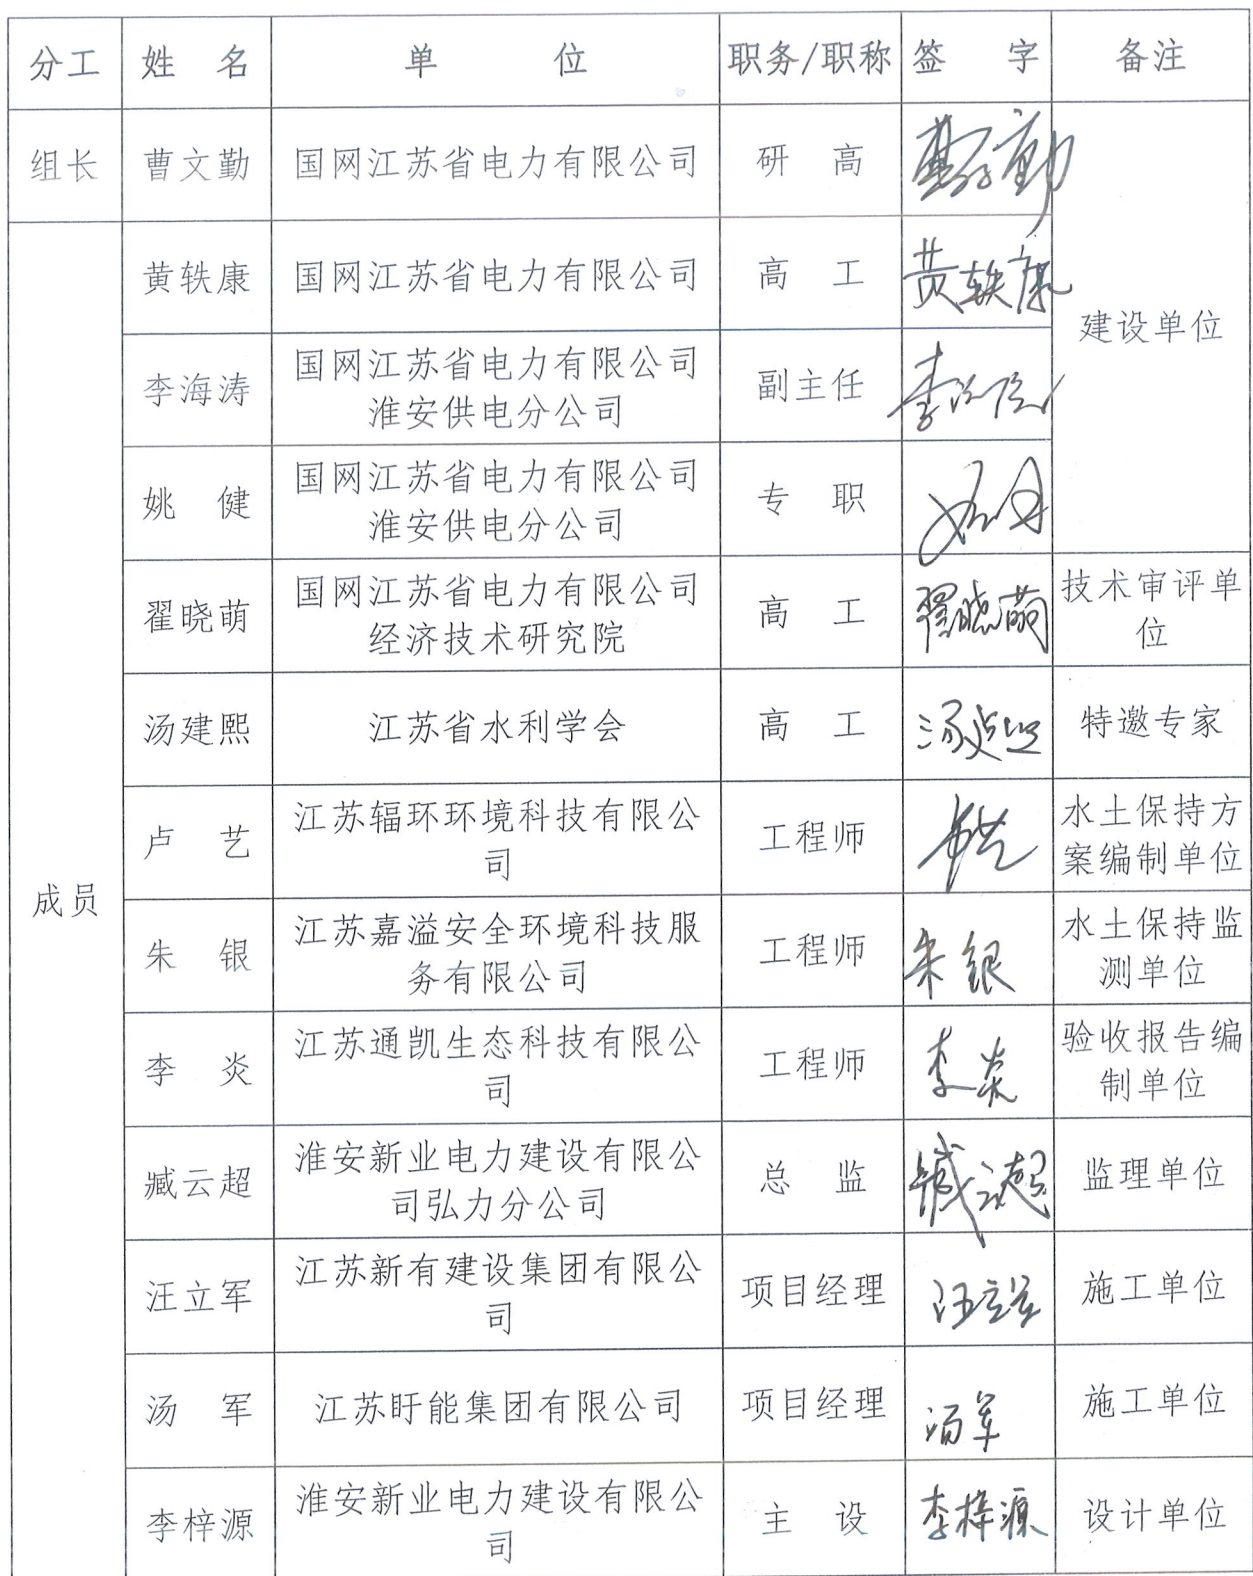 分工 姓 名 单 位 职务/职称 签 字 备注
组长 曹文勤 国网江苏省电力有限公司 研 高 曹文勤
建设单位
成员
黄轶康 国网江苏省电力有限公司 高 工 黄轶康
李海涛 国网江苏省电力有限公司
淮安供电分公司
副主任 李海涛
姚 健 国网江苏省电力有限公司
淮安供电分公司
专 职 姚健
翟晓萌 国网江苏省电力有限公司
经济技术研究院
高 工 翟晓萌
技术审评单
位
汤建熙 江苏省水利学会 高 工 汤建熙 特邀专家
卢 艺 江苏辐环环境科技有限公
司
工程师 卢艺
水土保持方
案编制单位
朱 银 江苏嘉溢安全环境科技服
务有限公司
工程师 朱银
水土保持监
测单位
李 炎 江苏通凯生态科技有限公
司
工程师 李炎
验收报告编
制单位
臧云超 淮安新业电力建设有限公
司弘力分公司
总 监 臧云超 监理单位
汪立军 江苏新有建设集团有限公
司
项目经理 汪立军 施工单位
汤 军 江苏盱能集团有限公司 项目经理 汤军 施工单位
李梓源 淮安新业电力建设有限公
司
主 设 李梓源 设计单位